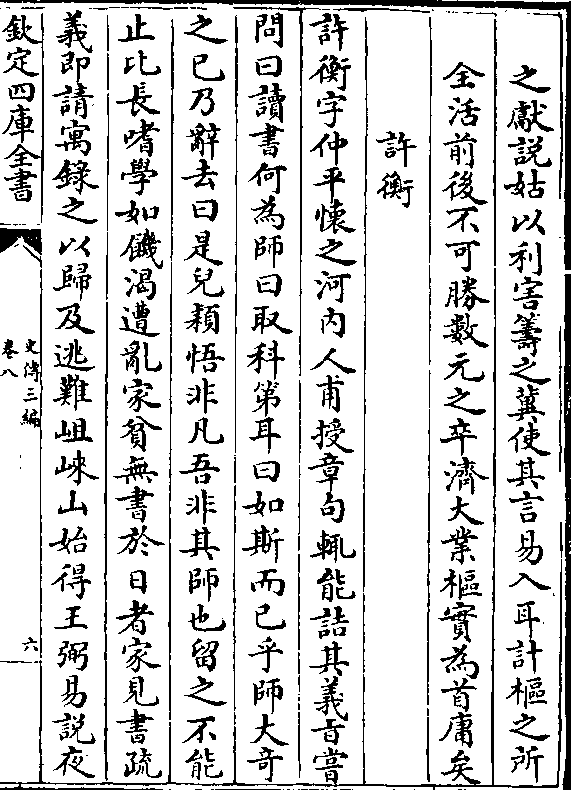 之獻說姑以利害籌之冀使其言易入耳計樞之所
全活前後不可勝數元之卒濟大業樞實為首庸矣
許衡
許衡字仲平懷之河内人甫授章句輒能詰其義旨嘗
問曰讀書何為師曰取科第耳曰如斯而已乎師大奇
之已乃辭去曰是兒穎悟非凡吾非其師也留之不能
止比長嗜學如饑渴遭亂家貧無書於日者家見書疏
義即請寓錄之以歸及逃難岨崍山始得王弼易說夜
欽定四庫全書
史傳三編
卷八
六